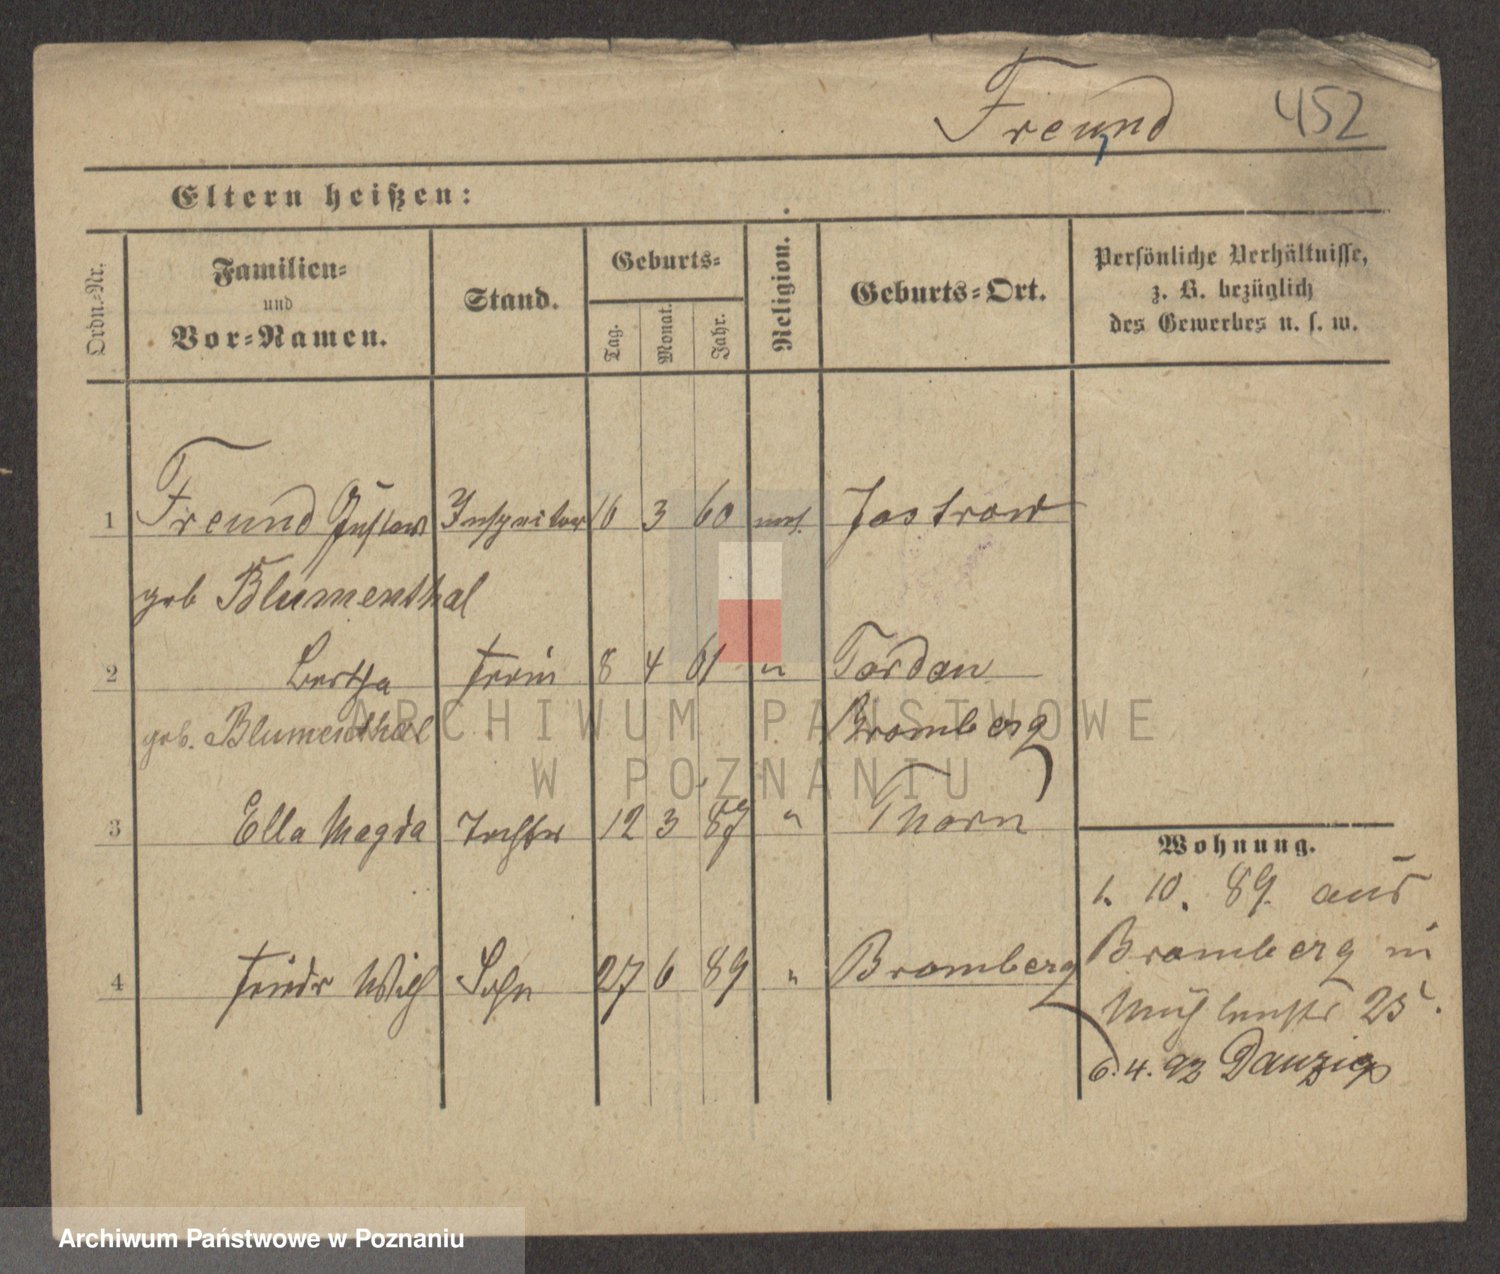 Freund 452
Eltern heißen:
Ordn.-Nr.
Familien-
und
Vor-Namen.
Stand.
Geburts-
Tag.
Monat.
Jahr.
Religion.
Geburts-Ort.
Persönliche Verhältnisse,
z. B. bezüglich
des Gewerbes u. s. w.
1 Freund Gustav Inspektor 16 3 60 mos. Jastrow
geb Blumenthal
2 Bertha Frau 8 4 61 " Fordon
geb. Blumenthal Bromberg
3 Ella Magda Tochter 12 3 87 " Thorn
4 Friedr Wilh Sohn 27 6 89 " Bromberg
Wohnung.
1. 10. 89. aus
Bromberg in
Mühlenstr 25
6. 4. 93 Danzig
ARCHIWUM PAŃSTWOWE
W POZNANIU
Archiwum Państwowe w Poznaniu